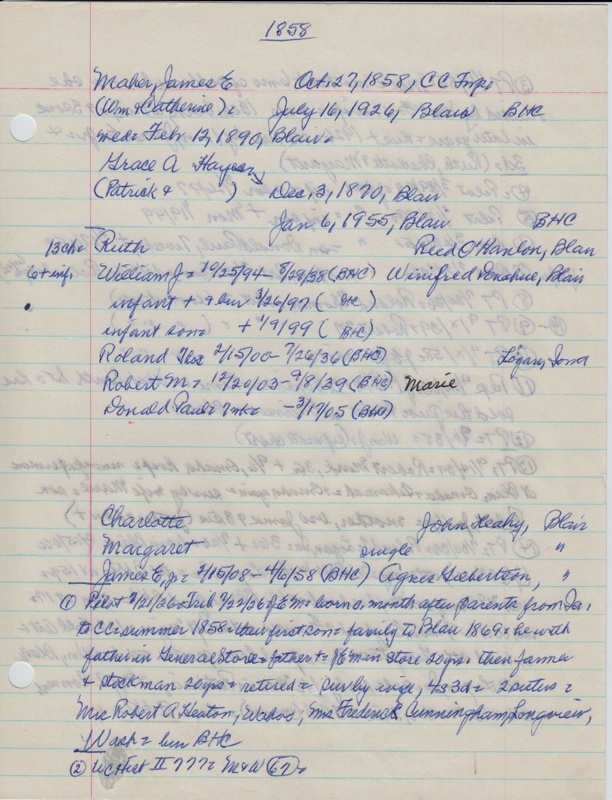 1858
Maher, James E Oct. 27, 1858, CC Impi
(Wm & Catherine) = July 16, 1926, Blair BHC
med = Feb. 12, 1890, Blair =
Grace A Hayes
(Patrick & ) Dec. 3, 1870, Blair
Jan 6, 1955, Blair BHC
13 ch = Ruth Reed O'Hanlon, Blair
6 + inf. William J = 10/25/94 - 8/29/38 (BHC) Winifred Donahue, Blair
infant + 9 hur 3/26/97 ( BHC )
infant son = + 1/9/99 ( BHC )
Roland 2/15/00 - 7/26/36 (BHC) Logan, Iowa
Robert M = 12/20/03 - 9/8/39 (BHC) Marie
Donald Paul = - 3/17/05 (BHC)
Charlotte John Healy, Blair
Margaret single "
James E, Jr = 2/15/08 - 4/6/58 (BHC) Agnes Giebertson, "
① Pilot 7/21/26 = Trib 7/22/26 = JEM = born a month after parents from Ia.
to CC = summer 1858 = their first son = family to Blair 1869 = he with
father in General Store = father + = JEM in store 20 yrs = then farmer
& stockman 20 yrs = retired = surv by wife, 4s 3d = 2 sisters =
Mrs Robert A Heaton, Wahoo, Mrs Frederick Cunningham, Longview,
Wash = bur BHC
② WC Hist II 777 = M & W 67 =